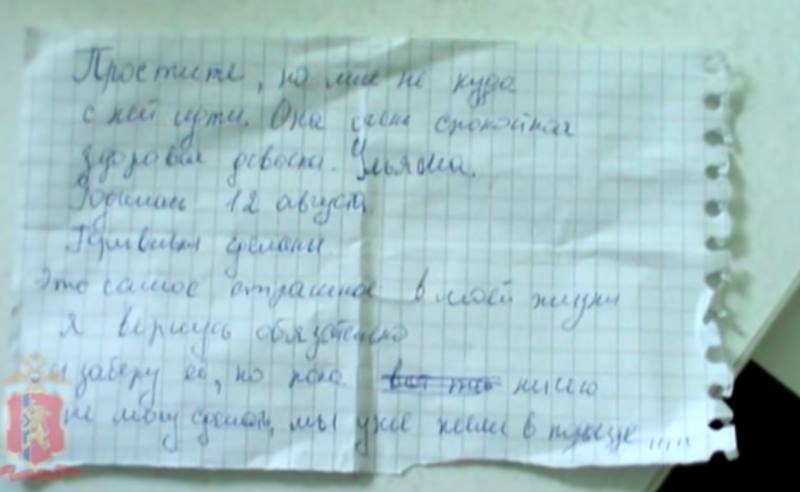 Простите, но мне не куда
с ней идти. Она очень спокойная
здоровая девочка. Ульяна.
Родилась 12 августа.
Прививки сделаны
Это самое страшное в моей жизни
я вернусь обязательно
и заберу её, но пока ничего
не могу сделать, мы уже жили в